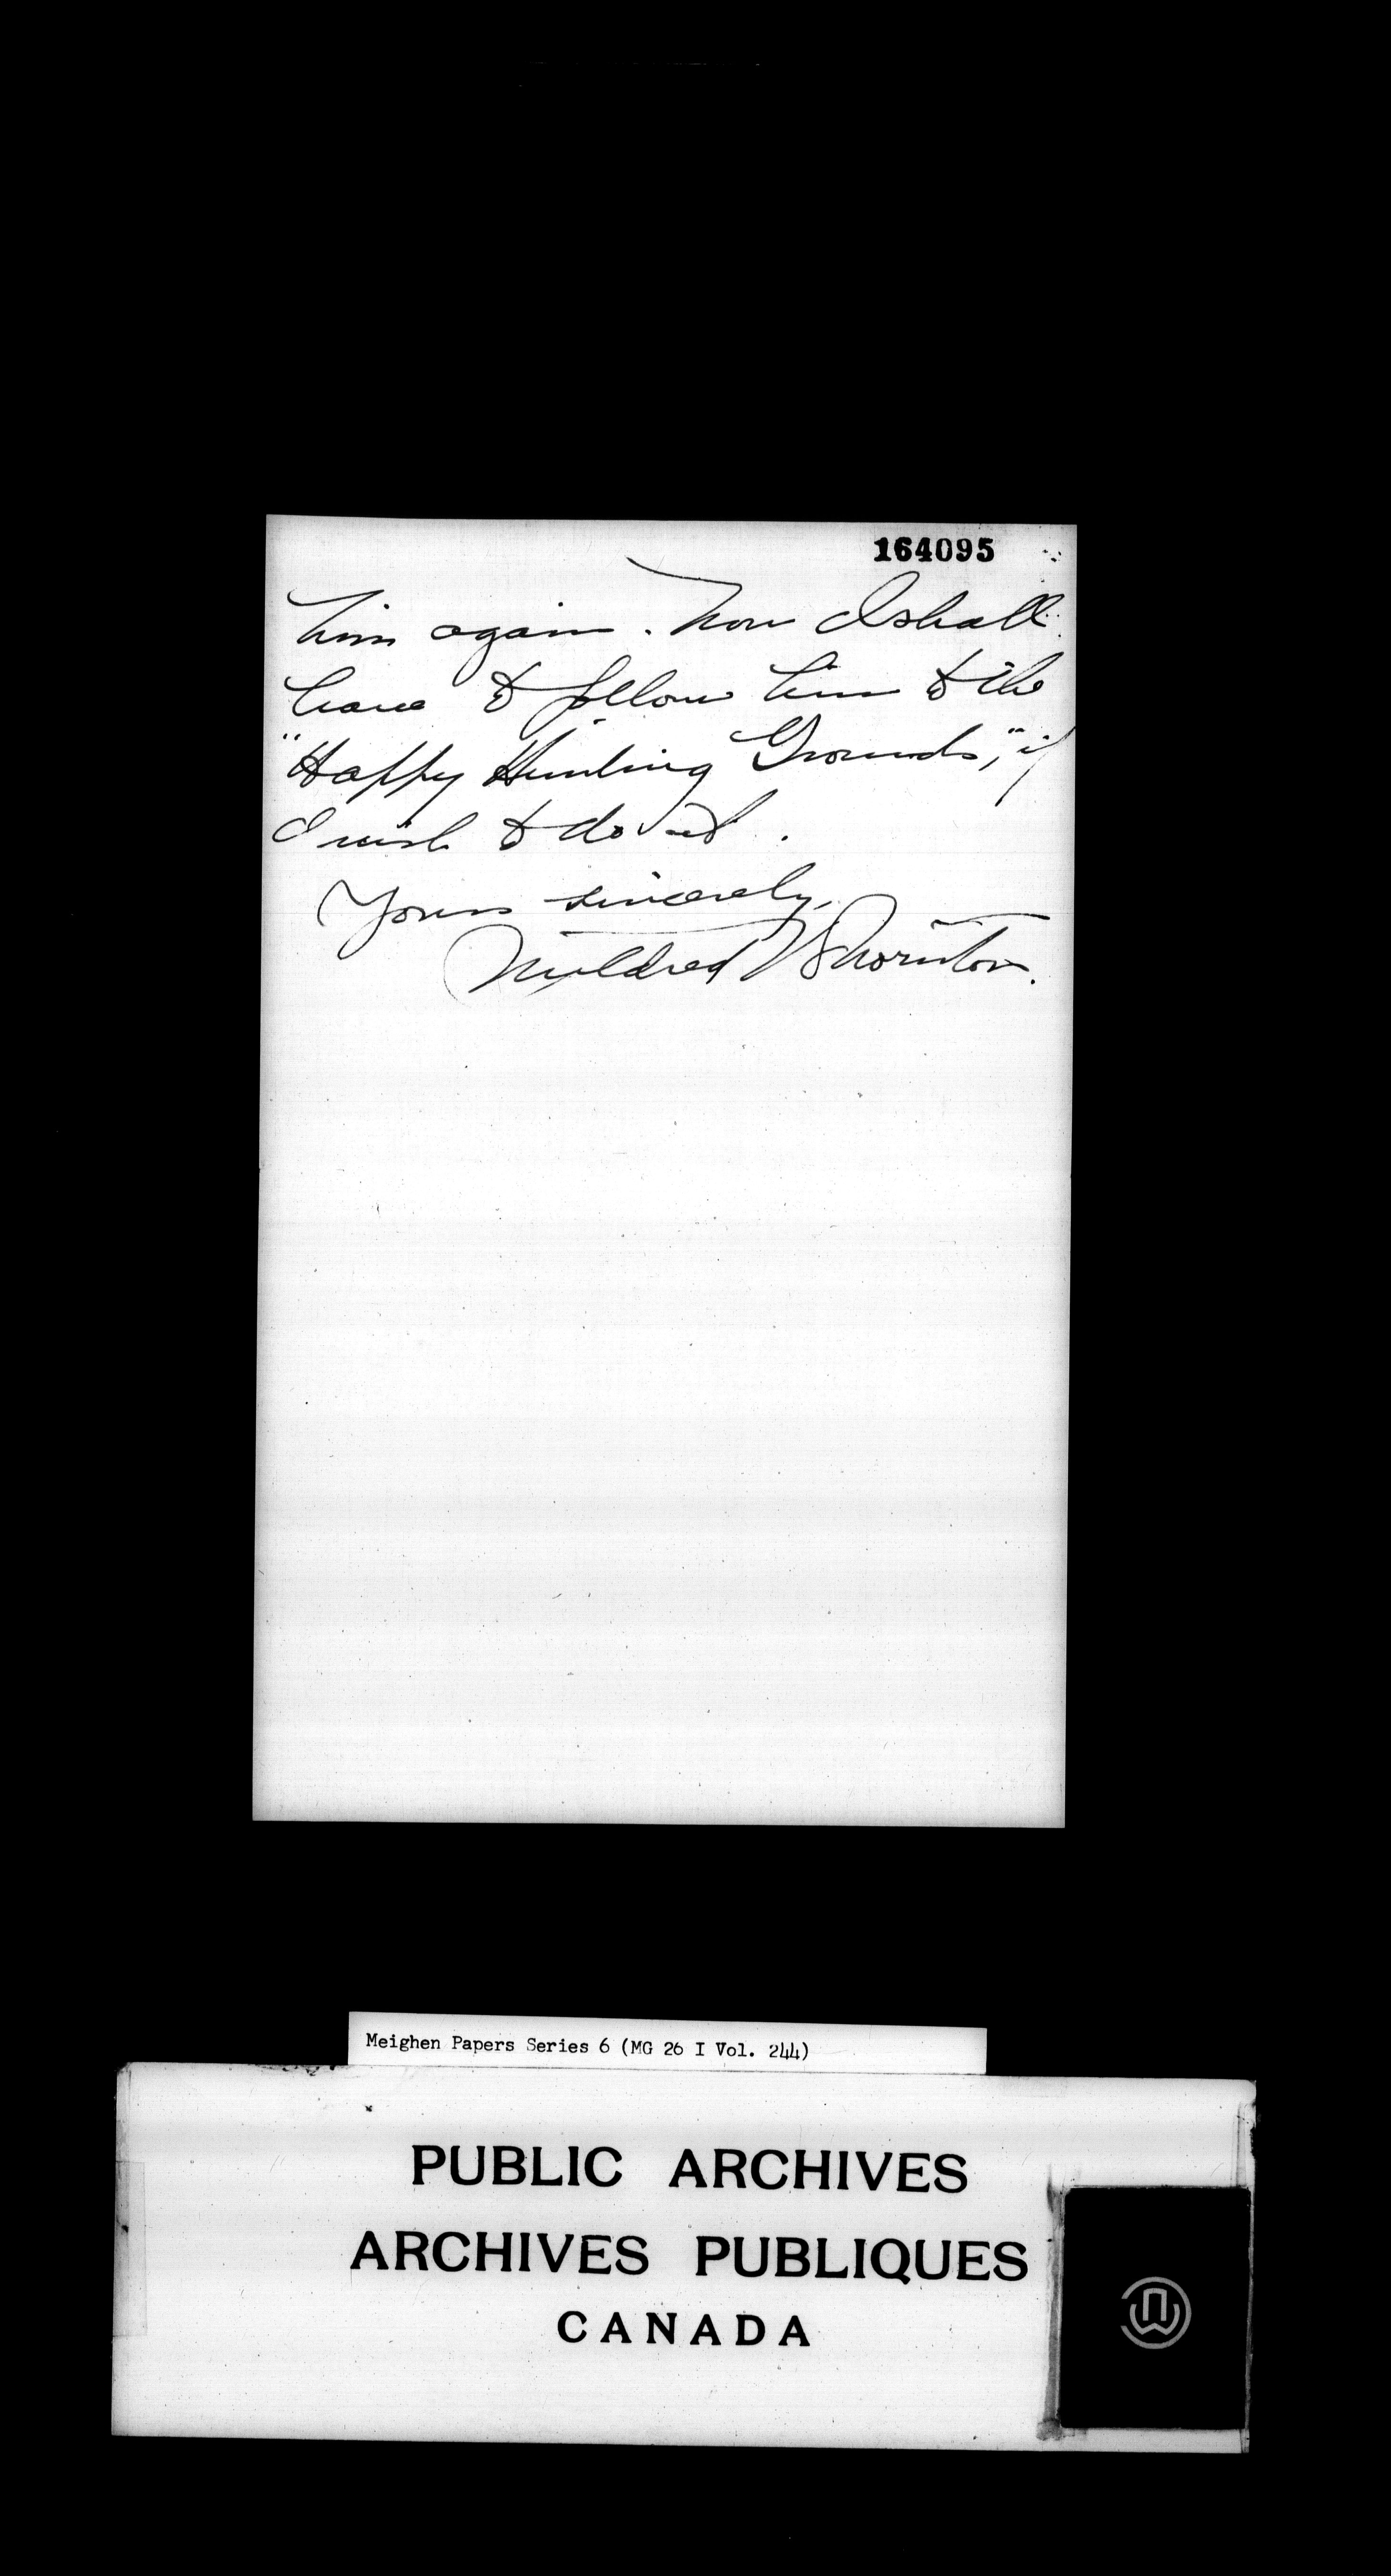 164095
him again. Now I shall
have to follow him to the
"Happy Hunting Grounds", if
I wish to do it.
Yours sincerely,
Mildred Thornton.
Meighen Papers Series 6 (MG 26 I Vol. 244)
PUBLIC ARCHIVES
ARCHIVES PUBLIQUES
CANADA